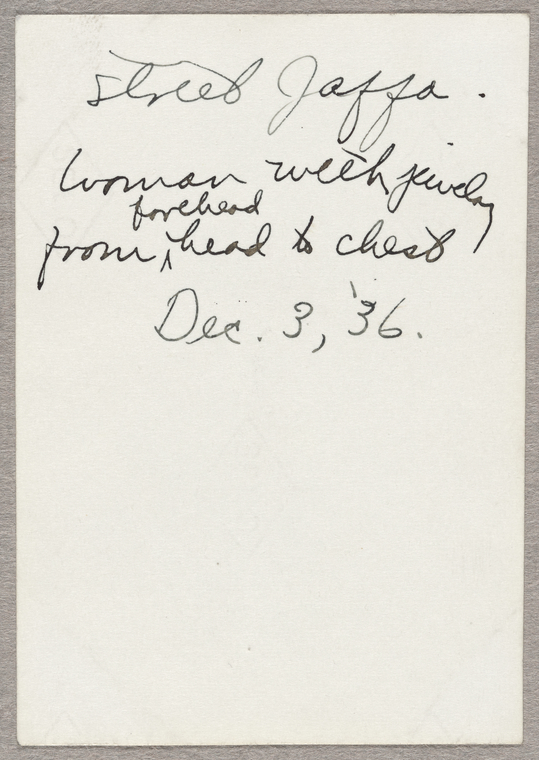 Street Jaffa.
Woman with jewelry
forehead
from ^ head to chest
Dec. 3, '36.